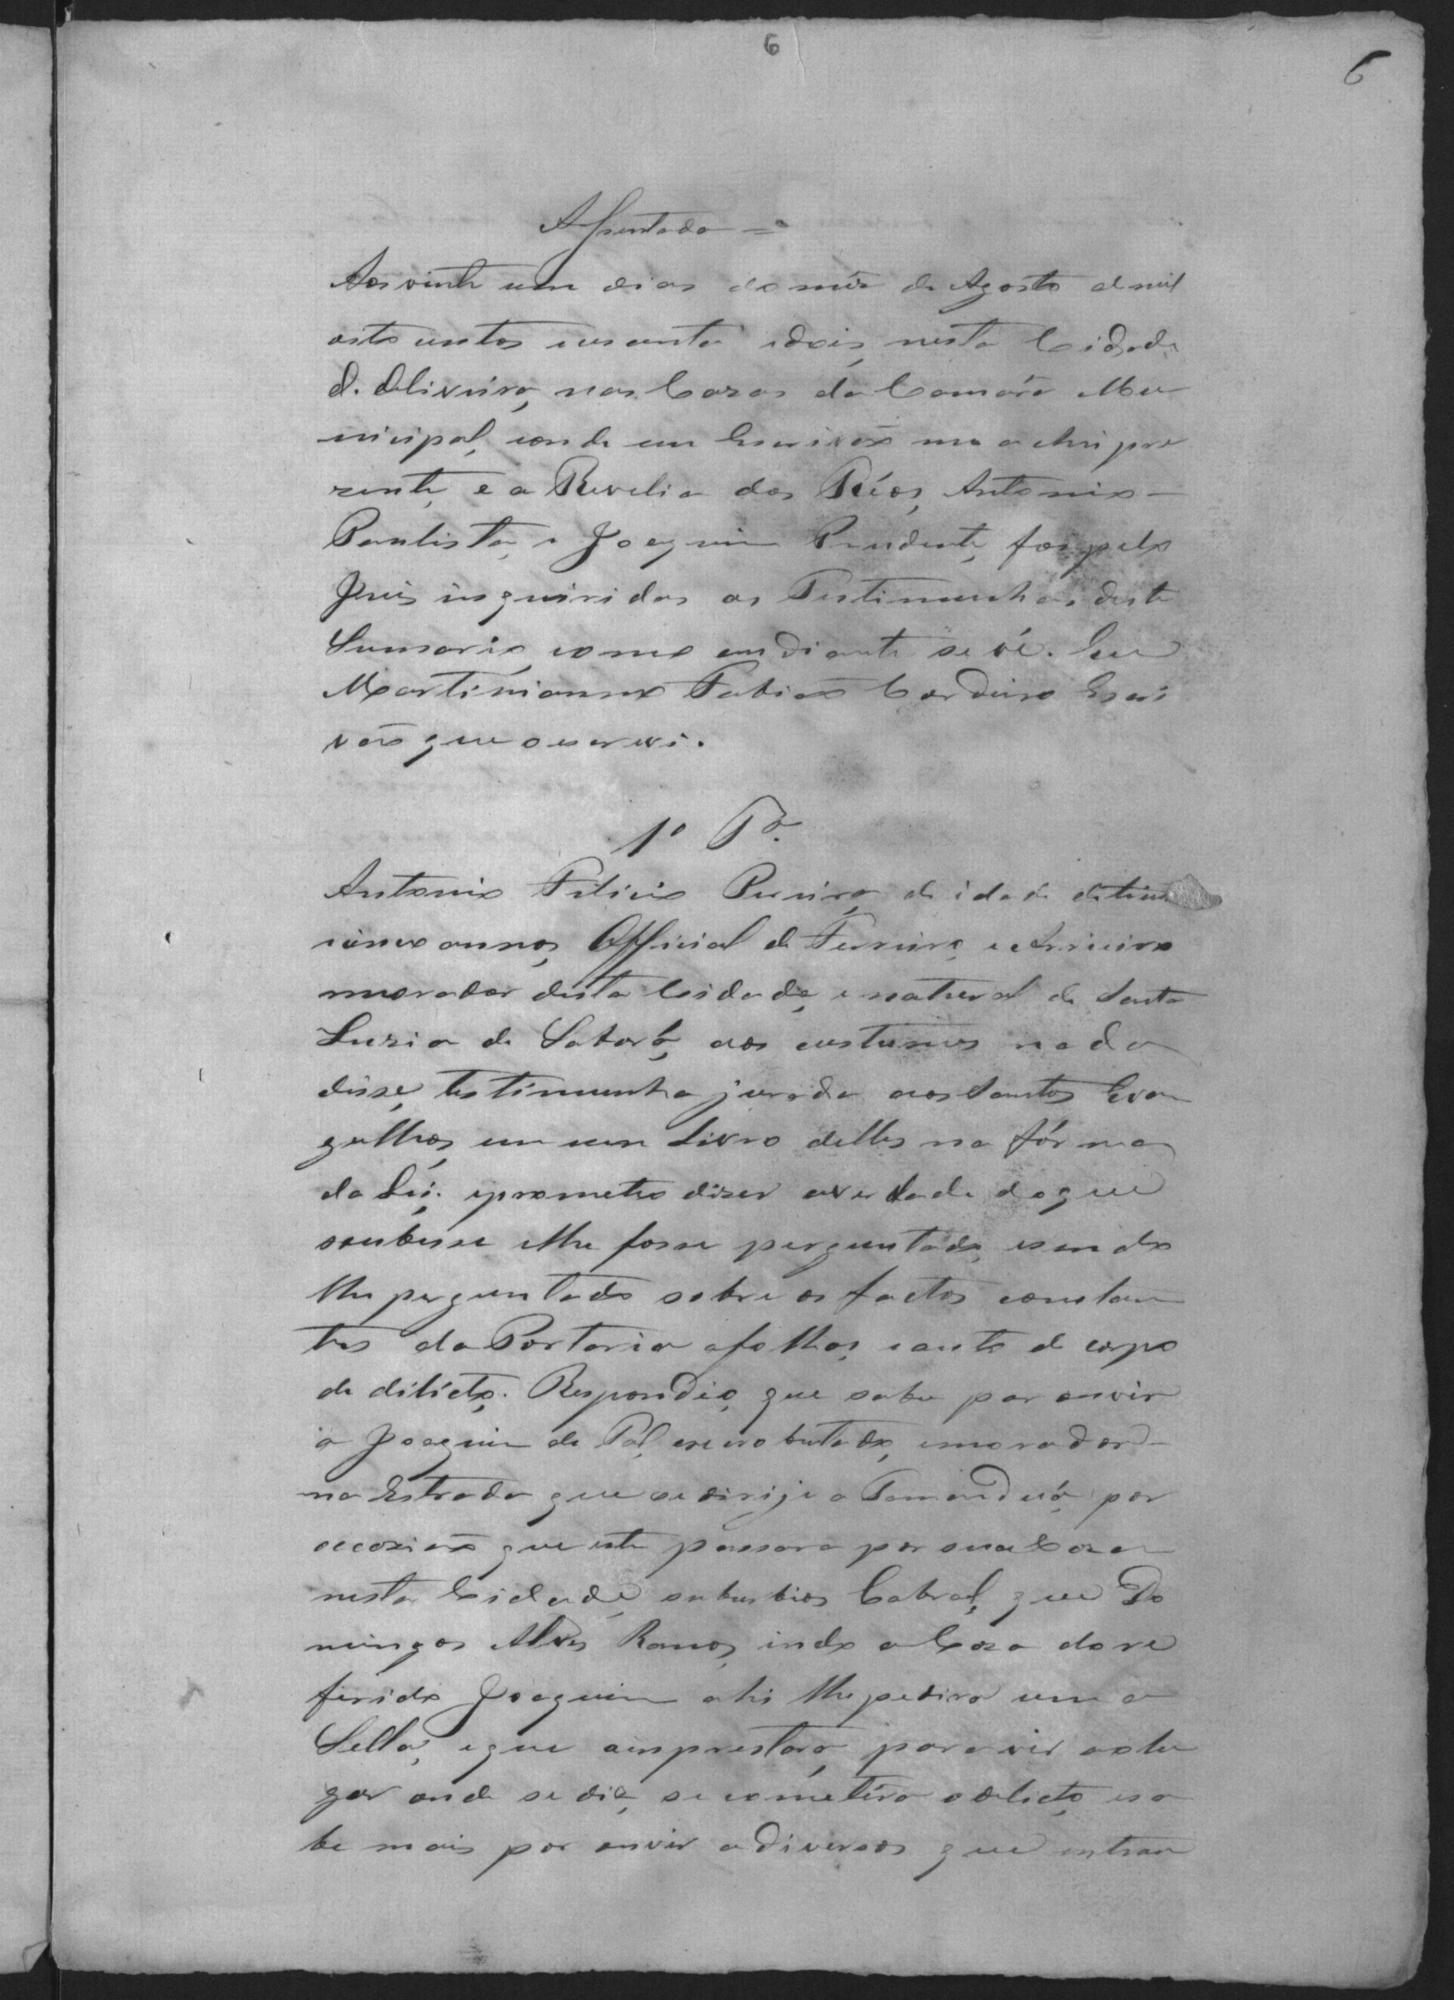 6
6
Assentada =
Aos vinte um dias do mês de Agosto de mil
oito centos secenta e dois, nesta Cidade
d'Oliveira, nas Cazas da Camara Mu
nicipal, onde eu Escrivaõ me achei pre
zente, e a Revelia dos Réos, Antonio
Paulista, e Joaquim Prudente, foi pelo
Juis inquiridas as Testimunhas deste
Sumario, como em diante se vê. Eu
Martiniano Fabiaõ Cordeiro Escri
vaõ que o escrevi.
1º Ta.
Antonio Felicio Pereira, de idade de trinta
cinco annos, Official de Ferreiro, e Arrieiro
morador desta Cidade, e natural de Santa
Luzia de Sabará, aos custumes nada
disse, testimunha jurada aos Santos Evan
gelhos, em um Livro delles na fórma
da Lei, e prometeo dizer averdade do que
soubesse e lhe fosse perguntado, e sendo
lhe perguntado sobre os factos constan
tes da Portaria afolhas, e auto de corpo
de dilicto. Respondeo, que sabe por ouvir
a Joaquim de Tal, morador
na Estrada que se dirije a Tamanduá, por
occaziaõ que este passara por sua Caza
nesta Cidade, suburbios Cabral, que Do
mingos Alves Ramos, indo a Caza do re
ferido Joaquim ahi lhe pedira uma
Sella, e que emprestara, para vir ao lu
gar onde se diz, se cometêra o delicto, e sa
be mais por ouvir a diversos que entran